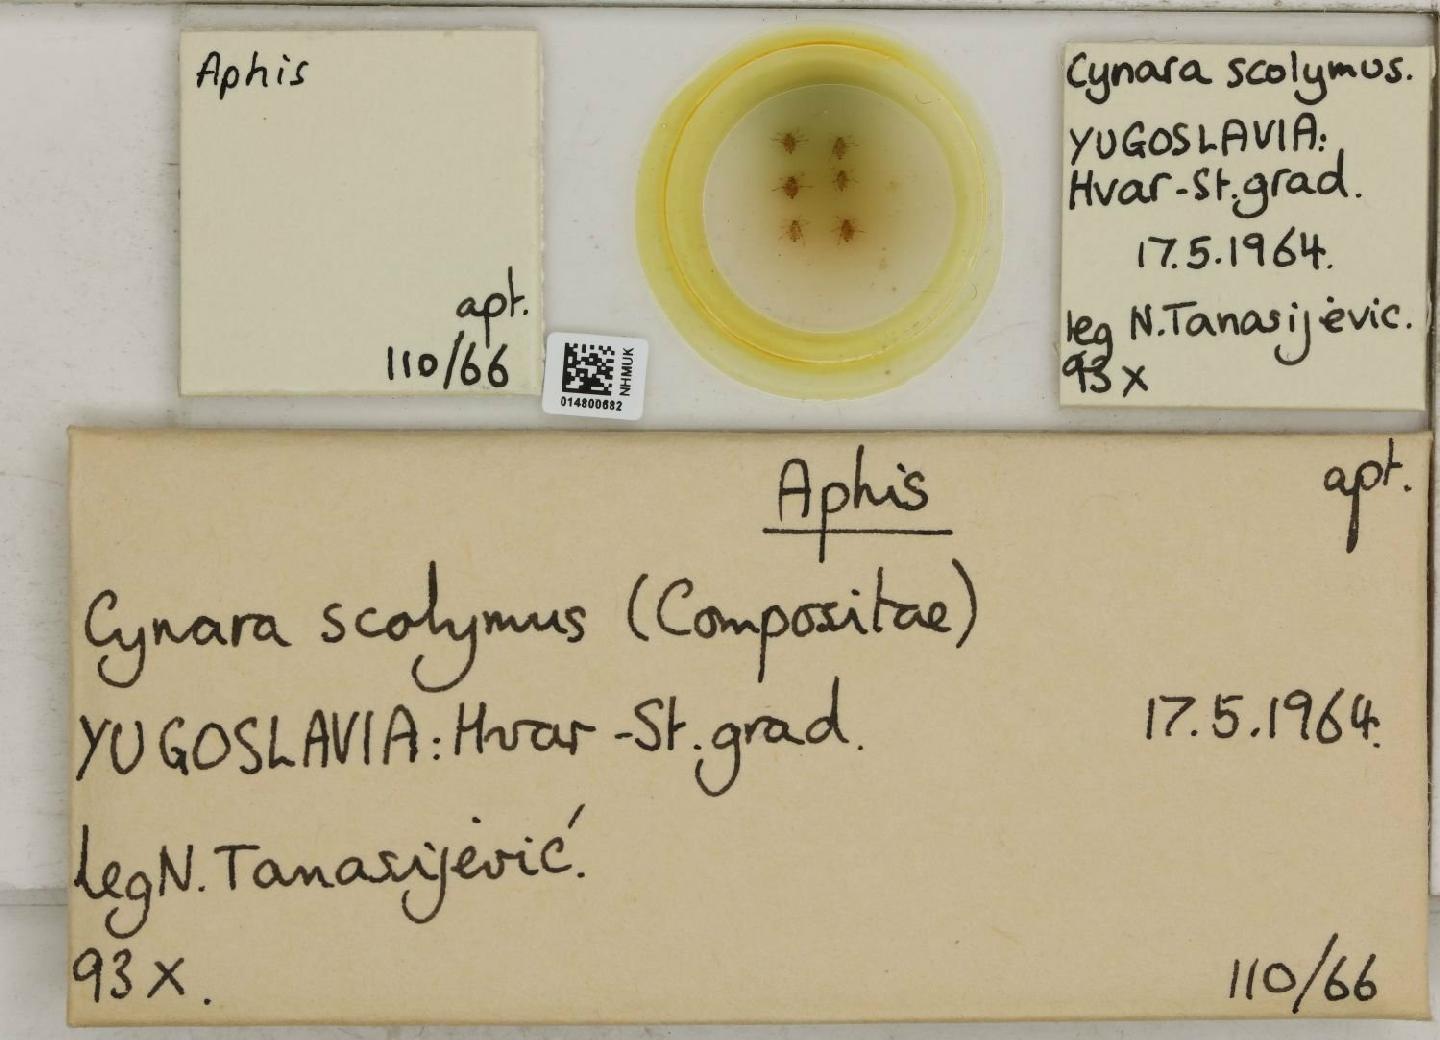 Aphis
apt.
110/66
NHMUK
014800682
Cynara scolymus.
YUGOSLAVIA:
Hvar-St.grad.
17.5.1964.
leg N.Tanasijėvic.
93 x
Aphis
apt.
Cynara scolymus (Compositae)
YUGOSLAVIA: Hvar-St.grad. 17.5.1964.
leg N. Tanasijėvić.
93 x.
110/66